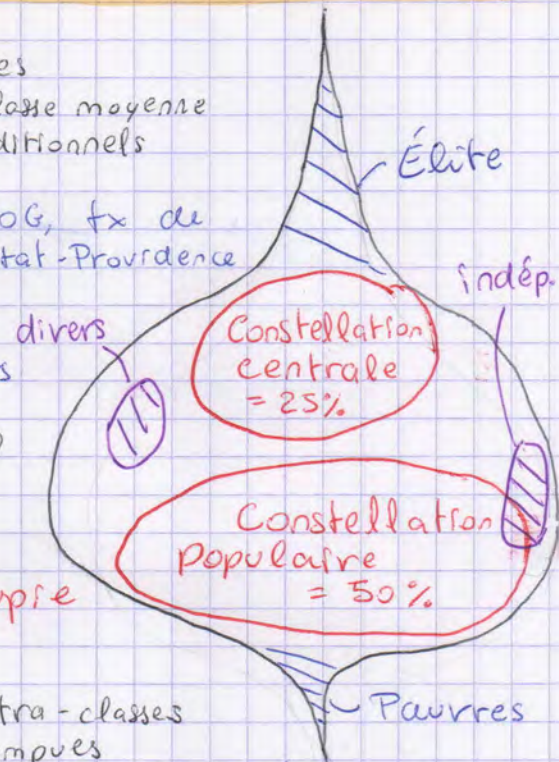 es
lasse moyenne
ditionnels
OG, tx de
tat-Providence
divers
s
pie
tra-classes
mpues
Élite
indép.
Constellation
centrale
= 25%
Constellation
populaire
= 50%
Pauvres